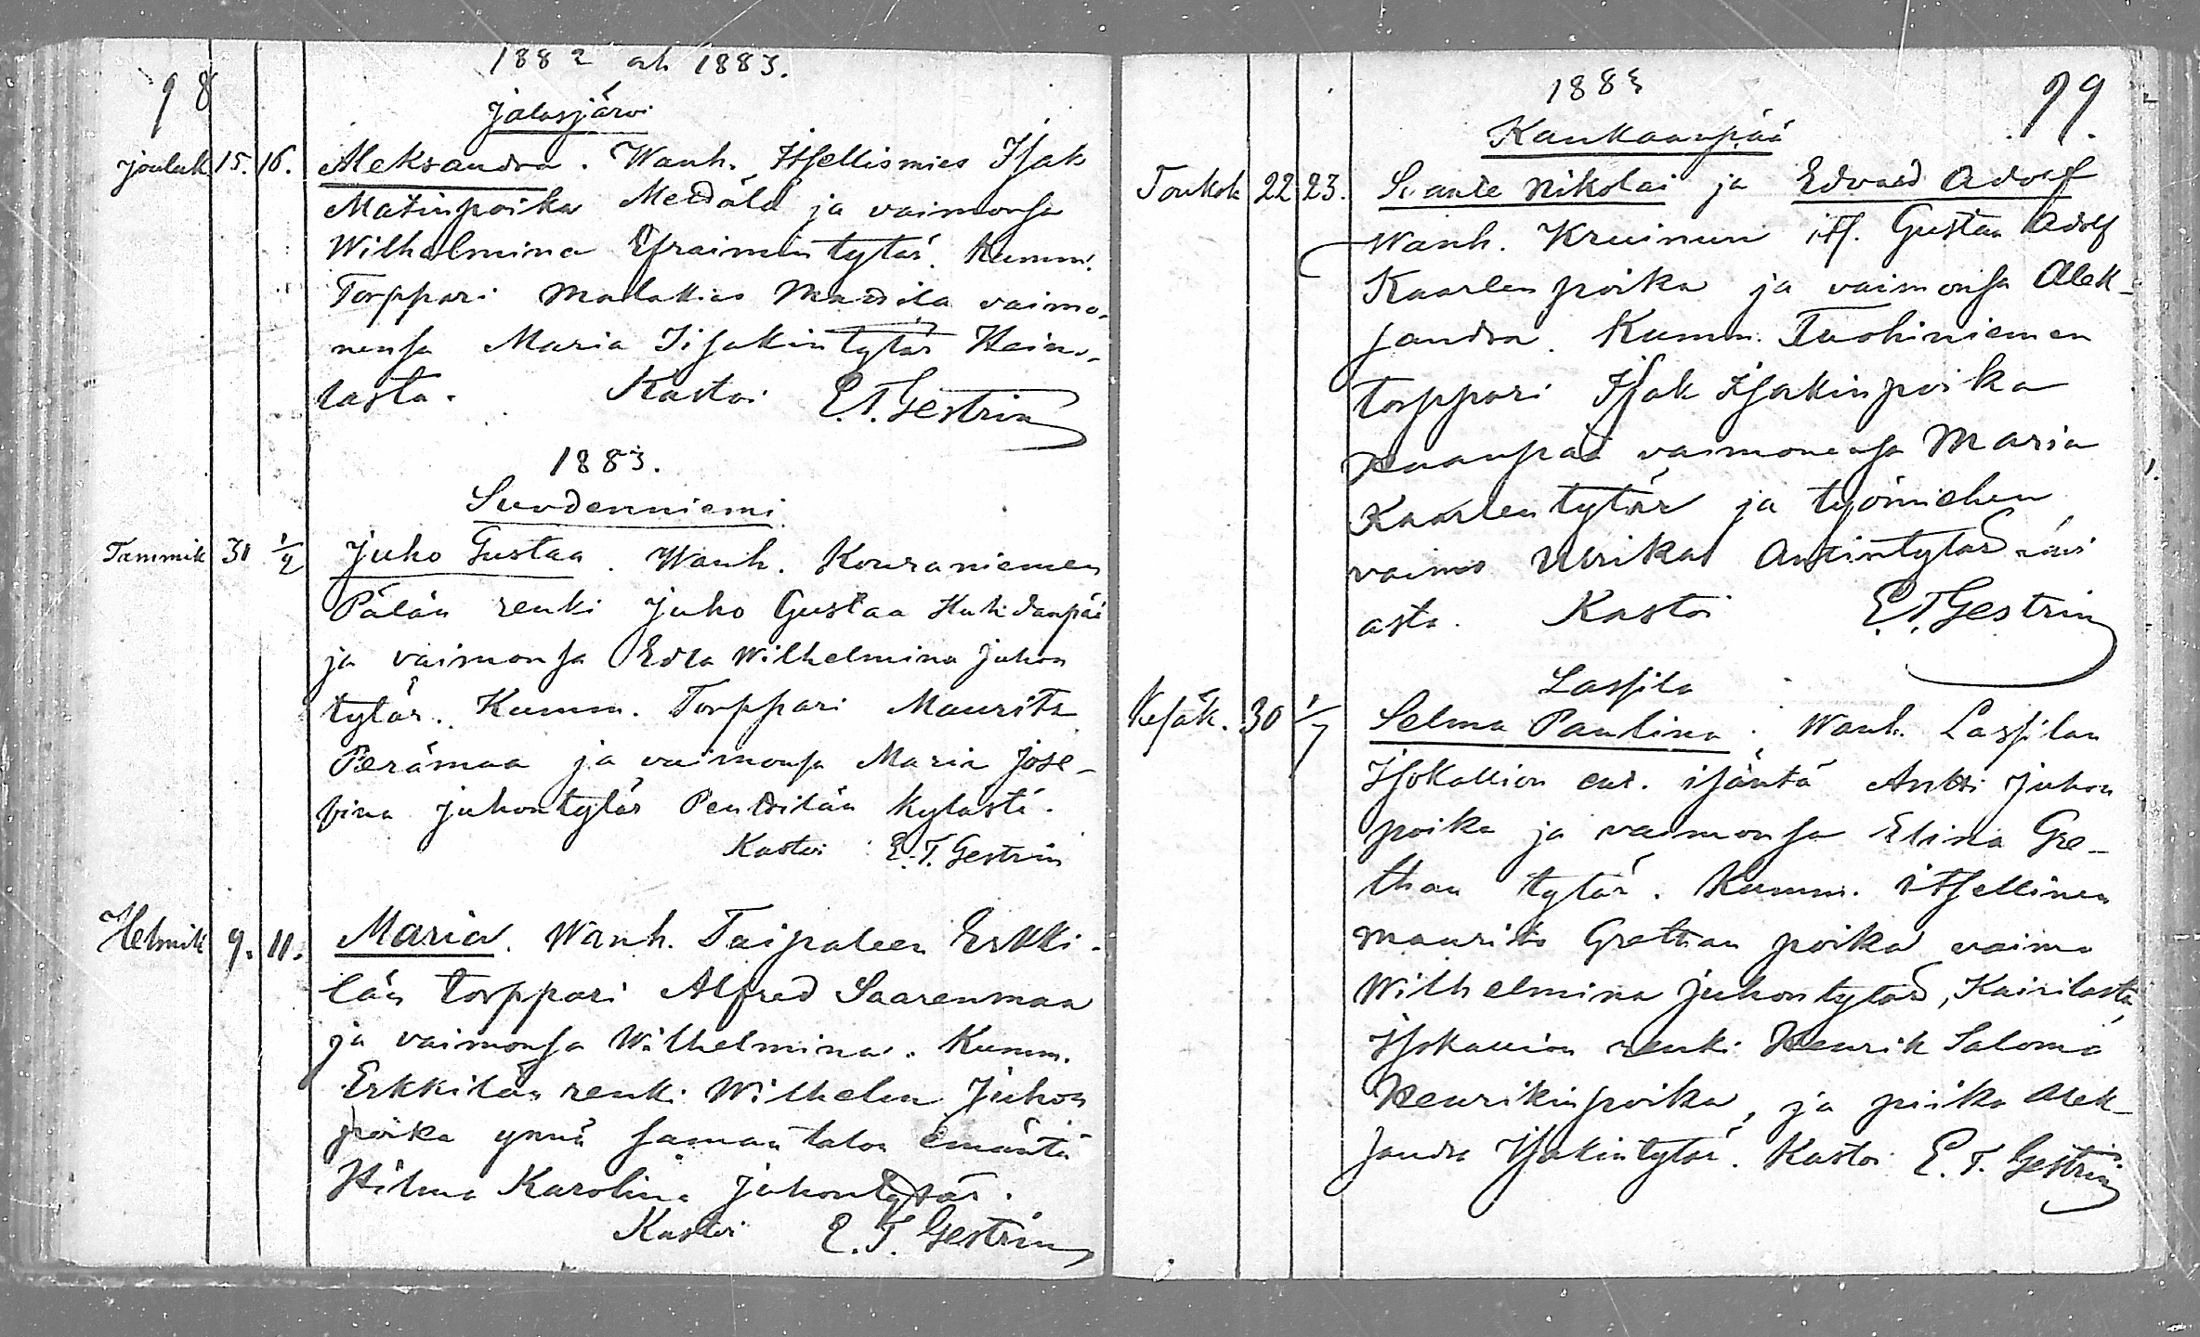 98
1882 ah 1883.
Jalasjärvi
Jouluk 15. 16. Aleksandra. Wanh. Itsellismies Isak
Matinpoika Metdälä ja vaimonsa
Wilhelmina Efraimin tytär. Kumm.
Torppari Malakias Mardila vaimo-
nensa Maria Iisakin tytär Heino-
lasta. Kastoi E.T. Gestrin
1883.
Suodenniemi
Tammik 31 1/2 Juho Gustaa. Wanh. Kouraniemen
Pälän renki Juho Gustaa Huhdanpää
ja vaimonsa Edla Wilhelmina Juhon
tytär. Kumm. Torppari Maurits
Perämaa ja vaimonsa Maria Jose-
fina Juhontytär Penttilän kylästä.
Kastoi E.T. Gestrin
Helmik 9. 11. Maria. Wanh. Taipaleen Erkki-
län torppari Alfred Saarenmaa
ja vaimonsa Wilhelmina. Kumm.
Erkkilän renki Wilhelm Juhon
poika ynnä saman talon emäntä
Hilma Karolina Juhontytär.
Kastoi E.T. Gestrin
99.
1883
Kankaanpää
Toukok 22 23. Svante Nikolai ja Edvard Adolf
Wanh. Kruunun its. Gustaa Adolf
Kaarlen poika ja vaimonsa Alek-
sandra. Kumm. Tuohiniemen
torppari Isak Isakinpoika
vaimonensa Maria
Kaarlen tytär ja työmiehen
vaimo Ulrika Antintytär
asta. Kastoi E.T. Gestrin
Lassila
Kesäk. 30 1/7 Selma Paulina. Wanh. Lassilan
Isokallion ent. isäntä Antti Juhon
poika ja vaimonsa Elina Gre-
than tytär. Kumm. itsellinen
Maurits Grethan poika vaimo
Wilhelmina Juhontytär, Kairilasta,
Isokallion renki Henrik Salomo
Henrikinpoika, ja piika Alek-
sandra Isakintytär. Kastoi E.T. Gestrin